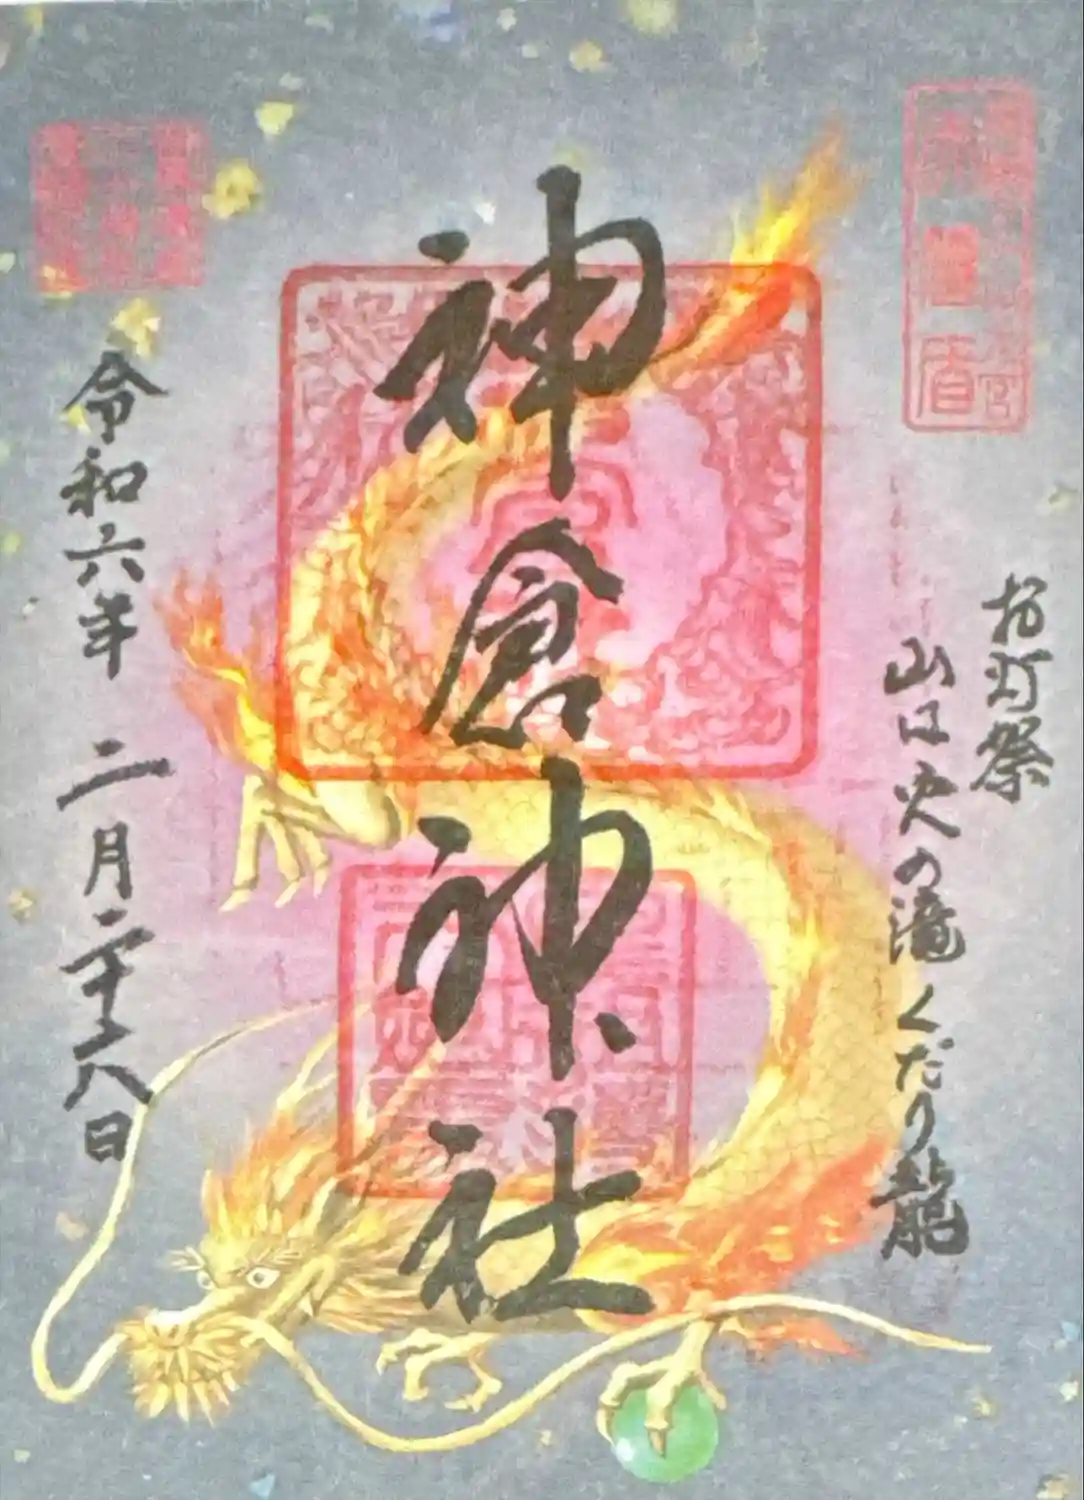 お灯祭
山は火の滝くだり龍
神倉神社
令和六年二月二十八日